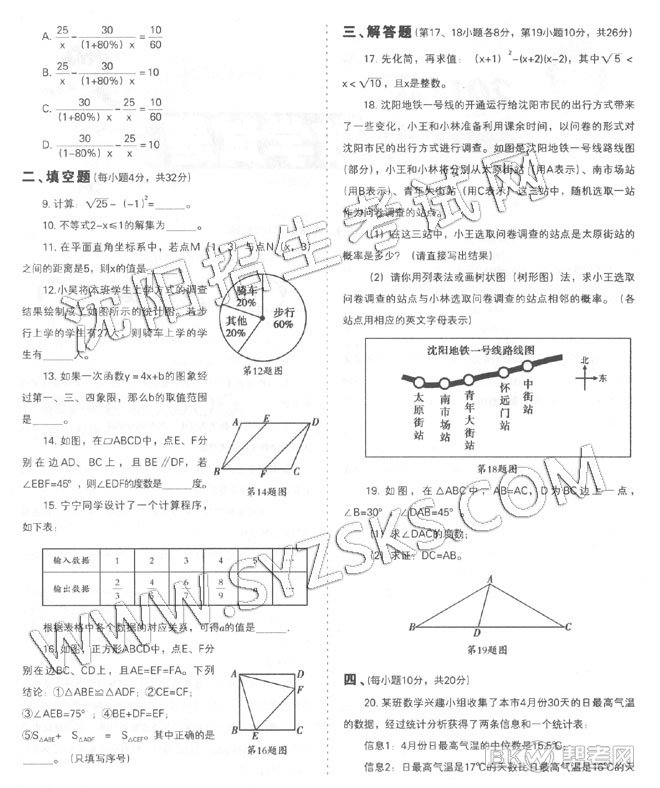 A. 25/x - 30/(1+80%)x = 10/60
B. 25/x - 30/(1+80%)x =10
C. 30/(1+80%)x - 25/x = 10/60
D. 30/(1-80%)x - 25/x =10
二、填空题(每小题4分，共32分)
9. 计算：√25－(－1)²=_____。
10. 不等式2－x≤1的解集为_____。
11. 在平面直角坐标系中，若点M（1，3）与点N（x，3）
之间的距离是5，则x的值是_____。
12.小吴将本班学生上学方式的调查
结果绘制成了如图所示的统计图。若步
行上学的学生有27人，则骑车上学的学
生有_____人。
骑车
20%
其他
20%
步行
60%
第12题图
13. 如果一次函数y＝4x+b的图象经
过第一、三、四象限，那么b的取值范围
是_____。
14. 如图，在▱ABCD中，点E、F分
别在边AD、BC上，且BE∥DF，若
∠EBF=45°，则∠EDF的度数是_____度。
A E D
B F C
第14题图
15. 宁宁同学设计了一个计算程序，
如下表：
输入数据 1 2 3 4 5 …
输出数据 2/3 4/5 6/7 8/9 a …
根据表格中各个数据的对应关系，可得a的值是_____。
16. 如图，正方形ABCD中，点E、F分
别在边BC、CD上，且AE=EF=FA。下列
结论：①△ABE≌△ADF；②CE=CF；
③∠AEB=75°；④BE+DF=EF；
⑤S△ABE＋ S△ADF ＝ S△CEF。其中正确的是
_____。(只填写序号)
A D
F
B E C
第16题图
三、解答题(第17、18小题各8分，第19小题10分，共26分)
17. 先化简，再求值：(x+1)²-(x+2)(x-2)，其中√5＜
x＜√10，且x是整数。
18. 沈阳地铁一号线的开通运行给沈阳市民的出行方式带来
了一些变化，小王和小林准备利用课余时间，以问卷的形式对
沈阳市民的出行方式进行调查。如图是沈阳地铁一号线路线图
(部分)，小王和小林将分别从太原街站（用A表示）、南市场站
(用B表示)、青年大街站（用C表示）这三站中，随机选取一站
作为问卷调查的站点。
(1) 在这三站中，小王选取问卷调查的站点是太原街站的
概率是多少？（请直接写出结果）
(2) 请你用列表法或画树状图（树形图）法，求小王选取
问卷调查的站点与小林选取问卷调查的站点相邻的概率。（各
站点用相应的英文字母表示)
沈阳地铁一号线路线图
北
东
太原街站
南市场站
青年大街站
怀远门站
中街站
第18题图
19. 如图，在△ABC中，AB=AC，D为BC边上一点，
∠B=30°，∠DAB=45°。
(1) 求∠DAC的度数；
(2) 求证：DC=AB。
A
B D C
第19题图
四、(每小题10分，共20分)
20. 某班数学兴趣小组收集了本市4月份30天的日最高气温
的数据，经过统计分析获得了两条信息和一个统计表：
信息1：4月份日最高气温的中位数是15.5℃；
信息2：日最高气温是17℃的天数比日最高气温是16℃的天
沈阳招生考试网
WWW.SYZSKS.COM
帮考网